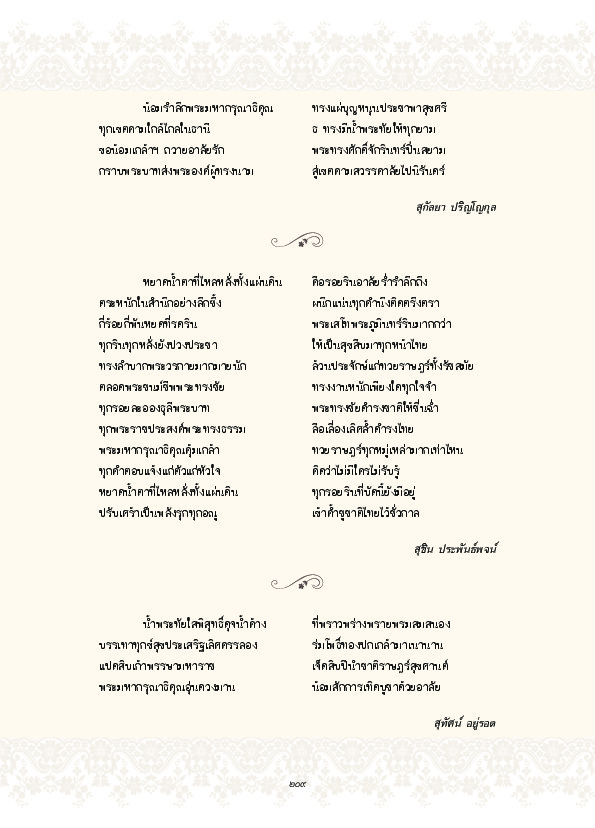 น้อมรำลึกพระมหากรุณาธิคุณ ทรงแผ่บุญหนุนประชาพาสุขศรี
ทุกเขตคามใกล้ไกลในธานี ธ ทรงมีน้ำพระทัยให้ทุกยาม
ขอน้อมเกล้าฯ ถวายอาลัยรัก พระทรงศักดิ์จักรินทร์ปิ่นสยาม
กราบพระบาทส่งพระองค์ผู้ทรงนาม สู่เขตคามสวรรคาลัยไปนิรันดร์
สุกัลยา ปริญโญกุล
หยาดน้ำตาที่ไหลหลั่งทั้งแผ่นดิน คือรอยรินอาลัยร่ำรำลึกถึง
ตระหนักในสำนึกอย่างลึกซึ้ง ผนึกแน่นทุกคำนึงติดตรึงตรา
กี่ร้อยกี่พันหยดที่รดริน พระเสโทพระภูมินทร์รินมากกว่า
ทุกรินทุกหลั่งยังปวงประชา ให้เป็นสุขสืบมาทุกหน้าไทย
ทรงลำบากพระวรกายมากมายนัก ล้วนประจักษ์แก่ทวยราษฎร์ทั้งรัชสมัย
ตลอดพระชนม์ชีพพระทรงชัย ทรงงานหนักเพียงใดทุกใจจำ
ทุกรอยละอองธุลีพระบาท พระทรงชัยดำรงชาติให้ชื่นฉ่ำ
ทุกพระราชประสงค์พระทรงธรรม ลือเลื่องเลิศล้ำดำรงไทย
พระมหากรุณาธิคุณคุ้มเกล้า ทวยราษฎร์ทุกหมู่เหล่ามากเท่าไหน
ทุกคำตอบแจ้งแก่ตัวแก่หัวใจ คิดว่าไม่มีใครไม่รับรู้
หยาดน้ำตาที่ไหลหลั่งทั้งแผ่นดิน ทุกรอยรินที่บัดนี้ยังมีอยู่
ปรับเศร้าเป็นพลังรุกทุกอณู เข้าค้ำชูชาติไทยไว้ชั่วกาล
สุชิน ประพันธ์พจน์
น้ำพระทัยใสพิสุทธิ์ดุจน้ำค้าง ที่พราวพร่างพรายพรมสมสนอง
บรรเทาทุกข์สุขประเสริฐเลิศครรลอง ร่มโพธิ์ทองปกเกล้ามาเนานาน
แปดสิบเก้าพรรษามหาราช เจ็ดสิบปีนำชาติราษฎร์สุขศานต์
พระมหากรุณาธิคุณอุ่นดวงมาน น้อมสักการเทิดบูชาด้วยอาลัย
สุทัศน์ อยู่รอด
๒๐๙